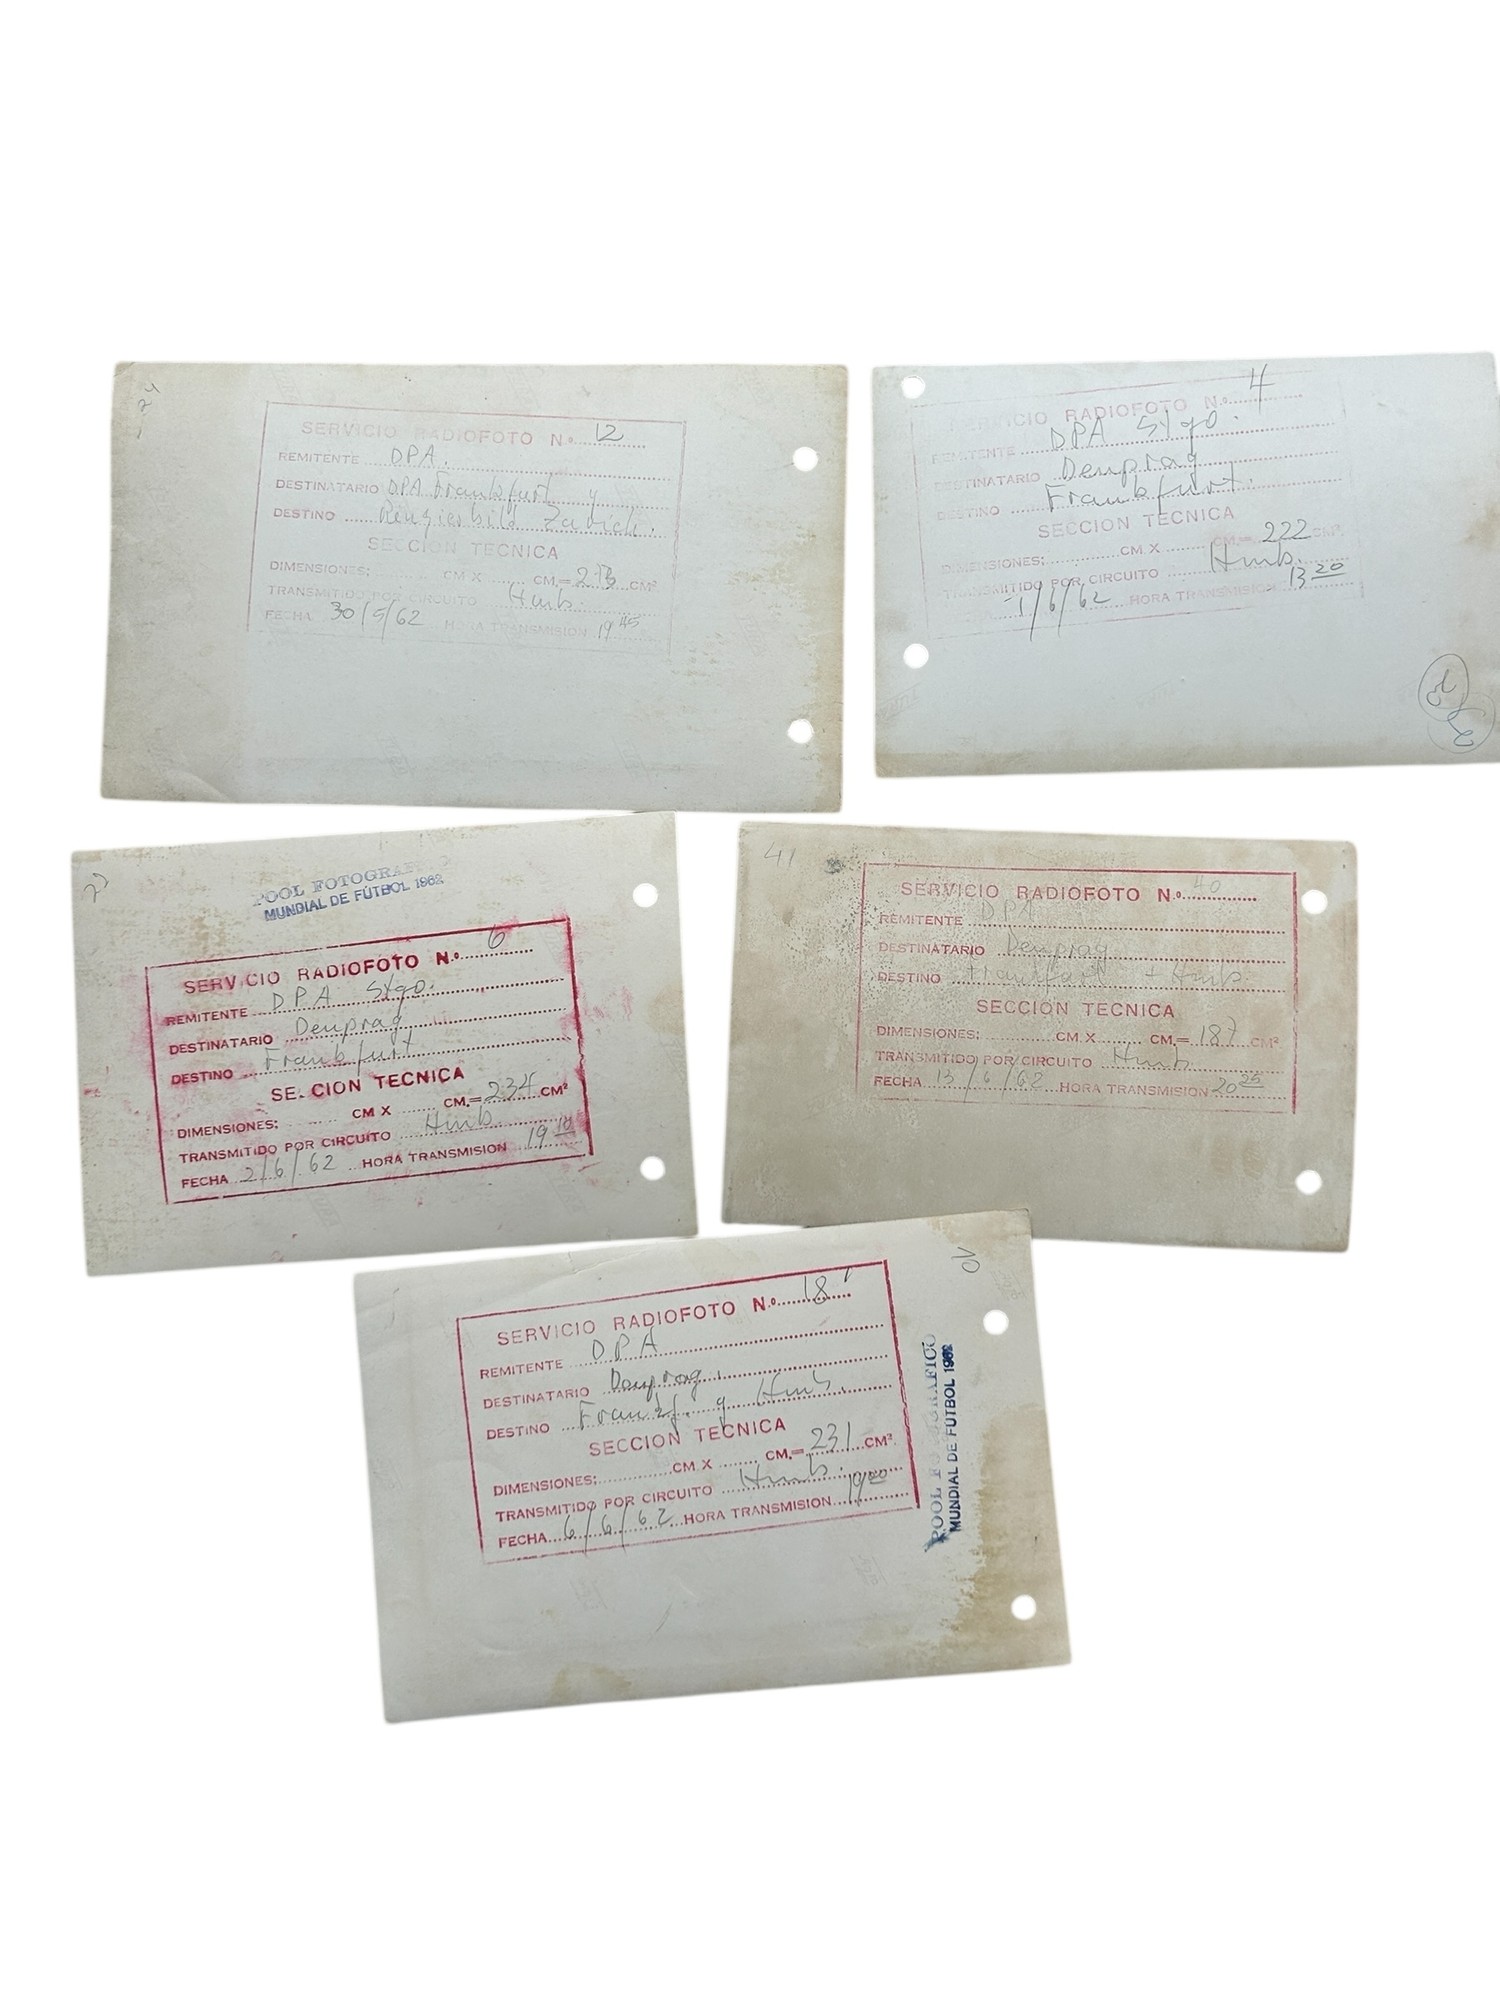 24
SERVICIO RADIOFOTO N.º 12
REMITENTE DPA.
DESTINATARIO DPA Frankfurt y
DESTINO Zurich.
SECCION TECNICA
DIMENSIONES: CM X CM.= CM²
TRANSMITIDO POR CIRCUITO Hmb.
FECHA 30/5/62 HORA TRANSMISION 19 45
SERVICIO RADIOFOTO N.º 4
REMITENTE DPA Stgo.
DESTINATARIO Deuprag
DESTINO Frankfurt.
SECCION TECNICA
DIMENSIONES: CM X CM.= 222 CM².
TRANSMITIDO POR CIRCUITO Hmb.
1/6/62 HORA TRANSMISION 13 20
POOL FOTOGRAF
MUNDIAL DE FÚTBOL 1962
SERVICIO RADIOFOTO N.º 6
REMITENTE DPA Stgo.
DESTINATARIO Deuprag
DESTINO Frankfurt
SECCION TECNICA
DIMENSIONES: CM X CM.= 234 CM²
TRANSMITIDO POR CIRCUITO Hmb.
FECHA 2/6/62 HORA TRANSMISION 19 10
41
SERVICIO RADIOFOTO N.º 40
REMITENTE DPA
DESTINATARIO Deuprag
DESTINO Frankfurt + Hmb.
SECCION TECNICA
DIMENSIONES: CM X CM.= 187 CM²
TRANSMITIDO POR CIRCUITO Hmb
FECHA 13/6/62 HORA TRANSMISION 20 25
SERVICIO RADIOFOTO N.º 18
REMITENTE DPA
DESTINATARIO Deuprag.
DESTINO Frankf. y Hmb.
SECCION TECNICA
DIMENSIONES: CM X CM.= 231 CM².
TRANSMITIDO POR CIRCUITO Hmb.
FECHA 6/6/62 HORA TRANSMISION 19 00
POOL FOTOGRAFICO
MUNDIAL DE FÚTBOL 1962